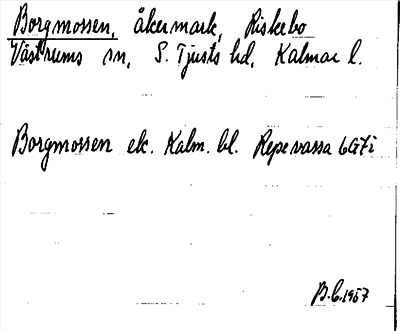 Borgmossen, åkermark, Riskebo
Västrums sn, S. Tjusts hd, Kalmar l.
Borgmossen ek. Kalm. bl. Repevassa 6G7i
B.C. 1957